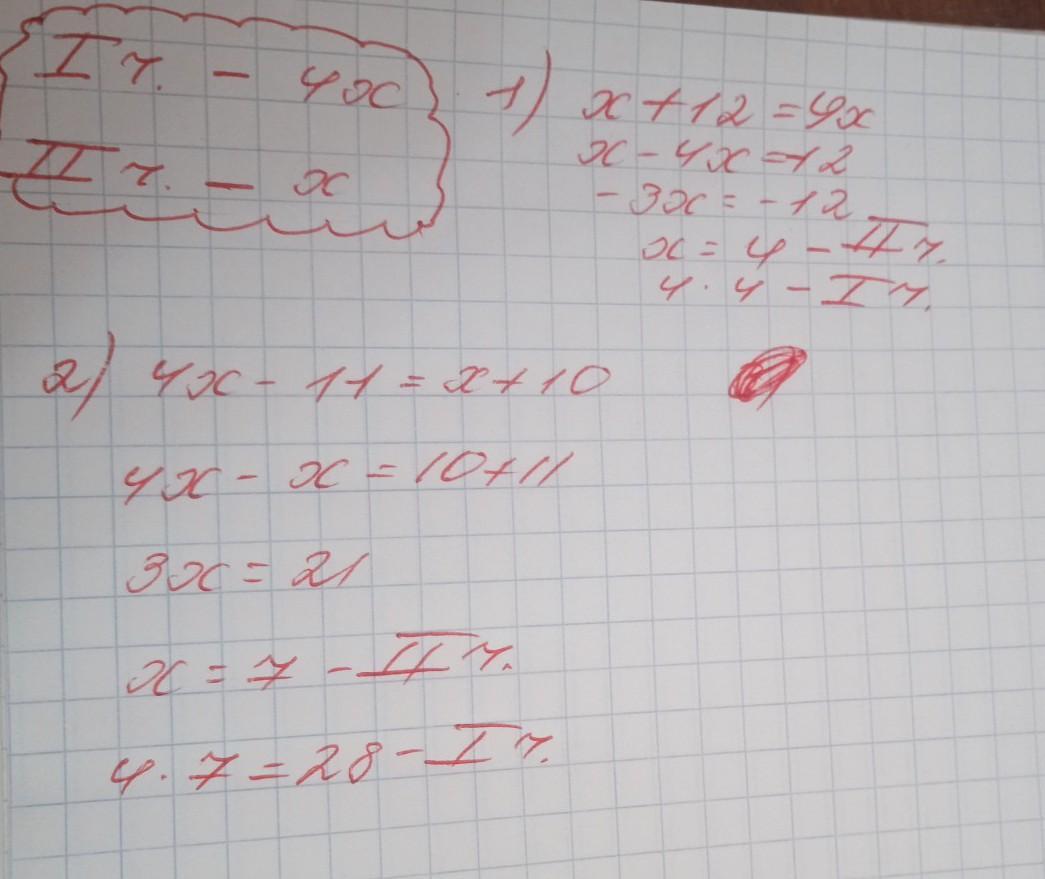 I ч. - 4x
II ч. - x
1) x+12=4x
x-4x=-12
-3x=-12
x=4-II ч.
4·4-I ч.
2) 4x-11=x+10
4x-x=10+11
3x=21
x=7-II ч.
4·7=28-I ч.